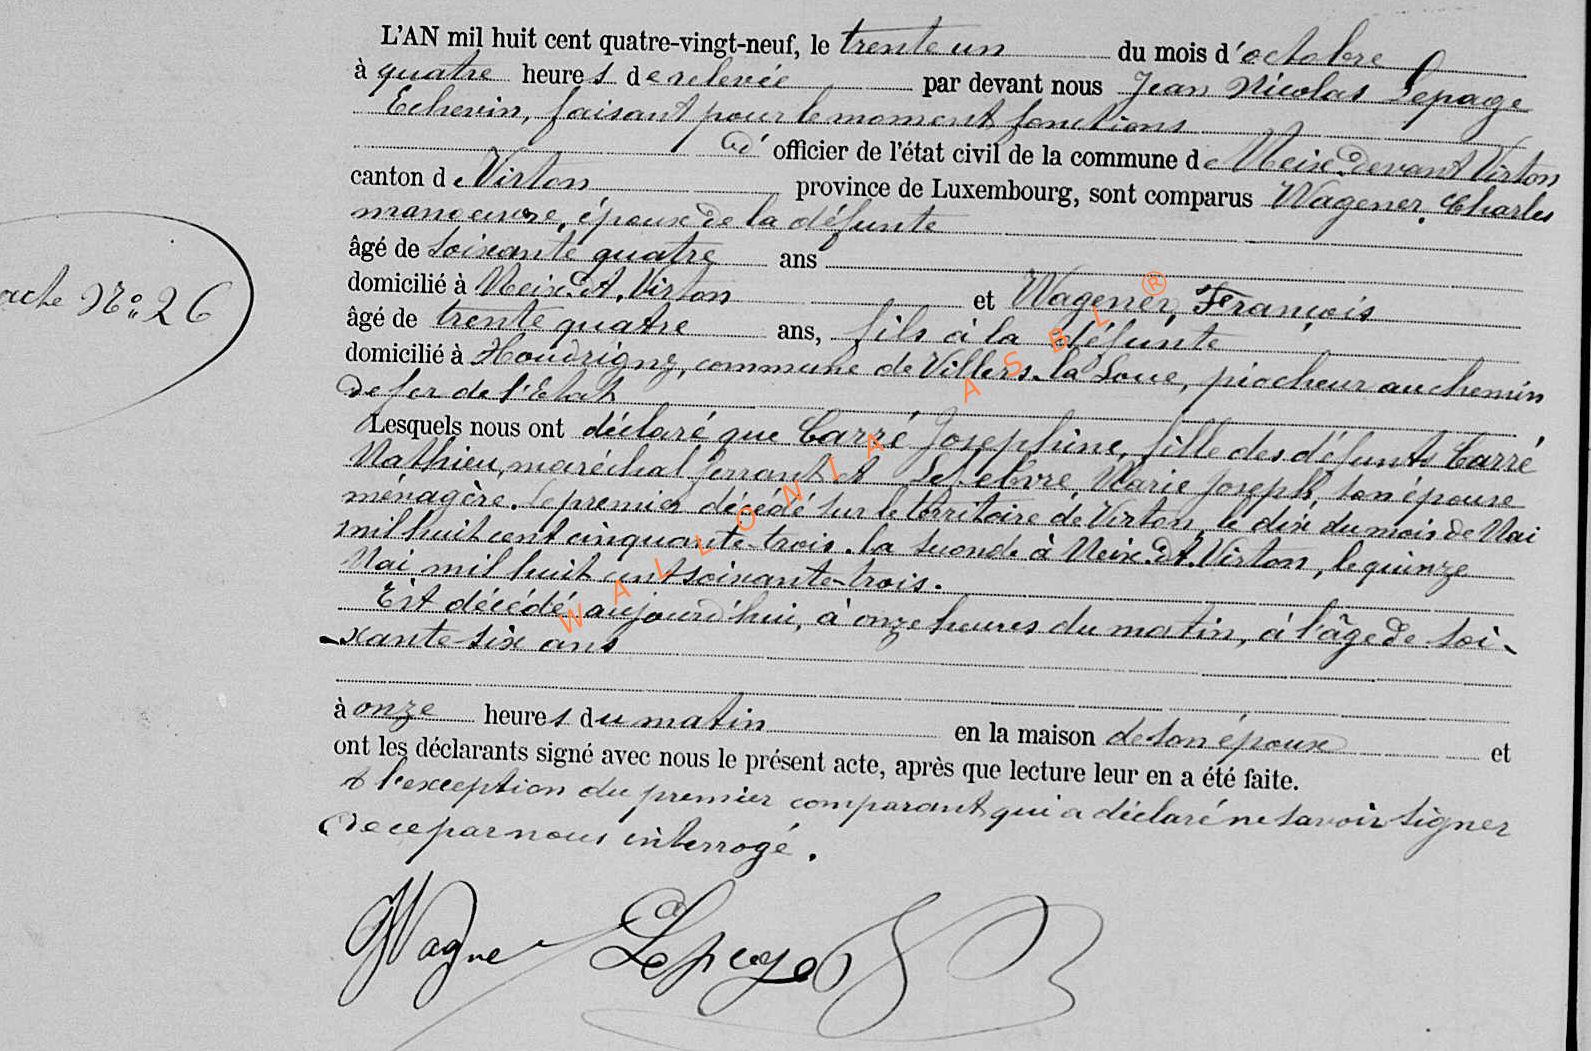 L'AN mil huit cent quatre-vingt-neuf, le trente un du mois d'octobre
à quatre heures de relevée par devant nous Jean Nicolas Lepage
Echevin, faisant pour le moment fonctions
d' officier de l'état civil de la commune de Meix-devant Virton
canton de Virton province de Luxembourg, sont comparus Wagener, Charles
manoeuvre, époux de la défunte
âgé de soixante quatre ans
domicilié à Meix dt. Virton et Wagener, François
âgé de trente quatre ans, fils à la défunte
domicilié à Houdrigny, commune de Villers-la Loue, piocheur au chemin
de fer de l'Etat
Lesquels nous ont déclaré que Carré Josephine, fille des défunts Carré
acte No: 26
Mathieu, maréchal ferrant et Lefebvre Marie Joseph, son épouse
ménagère. Le premier décédé sur le térritoire de Virton, le dix du mois de Mai
mil huit cent cinquante-trois. la seconde à Meix. dt. Virton, le quinze
Mai mil huit cent soixante-trois.
Est décédé aujourd'hui, à onze heures du matin, à l'âge de soi-
xante-six ans
à onze heures du matin en la maison de son époux et
ont les déclarants signé avec nous le présent acte, après que lecture leur en a été faite.
à l'exception du premier comparant qui a déclaré ne savoir signer
de ce par nous interrogé.
Wagner Lepage
WALLONIA ASBL ®